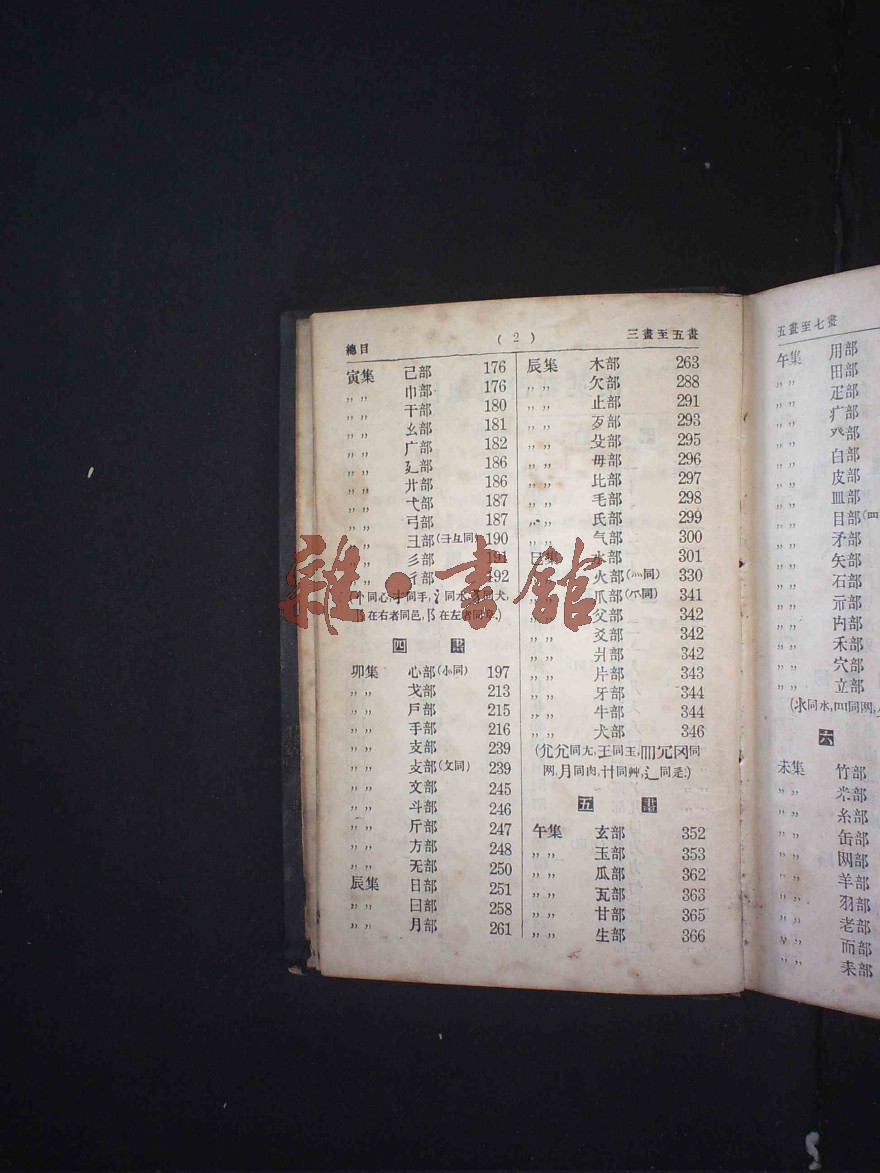 總目 (2) 三畫至五畫
寅集 己部 176
〃〃 巾部 176
〃〃 干部 180
〃〃 幺部 181
〃〃 广部 182
〃〃 廴部 186
〃〃 廾部 186
〃〃 弋部 187
〃〃 弓部 187
〃〃 彐部(彑同) 190
〃〃 彡部 191
〃 彳部 192
(忄同心,扌同手,氵同水,犭同犬,
阝在右者同邑,阝在左者同阜.)
四畫
卯集 心部(㣺同) 197
〃〃 戈部 213
〃〃 戶部 215
〃〃 手部 216
〃〃 支部 239
〃〃 攴部(攵同) 239
〃〃 文部 245
〃〃 斗部 246
〃〃 斤部 247
〃〃 方部 248
〃〃 无部 250
辰集 日部 251
〃〃 曰部 258
〃〃 月部 261
辰集 木部 263
〃〃 欠部 288
〃〃 止部 291
〃〃 歹部 293
〃〃 殳部 295
〃〃 毋部 296
〃〃 比部 297
〃〃 毛部 298
〃〃 氏部 299
〃〃 气部 300
巳集 水部 301
火部(灬同) 330
爪部(爫同) 341
〃〃 父部 342
〃〃 爻部 342
〃〃 爿部 342
〃〃 片部 343
〃〃 牙部 344
〃〃 牛部 344
〃〃 犬部 346
同尢,王同玉,罒冗冈同
网,月同肉,艹同艸,辶同辵.)
五畫
午集 玄部 352
〃〃 玉部 353
〃〃 瓜部 362
〃〃 瓦部 363
〃〃 甘部 365
〃〃 生部 366
五畫至七畫
午集 用部
〃〃 田部
〃〃 疋部
〃〃 疒部
〃〃 癶部
〃〃 白部
〃〃 皮部
〃〃 皿部
〃〃 目部(罒
〃〃 矛部
〃〃 矢部
〃〃 石部
〃〃 示部
〃〃 禸部
〃〃 禾部
〃〃 穴部
〃〃 立部
(氺同水,罒同网,
六
未集 竹部
〃〃 米部
〃〃 糸部
〃〃 缶部
〃〃 网部
〃〃 羊部
〃〃 羽部
〃〃 老部
〃〃 而部
〃〃 耒部
雜·書館